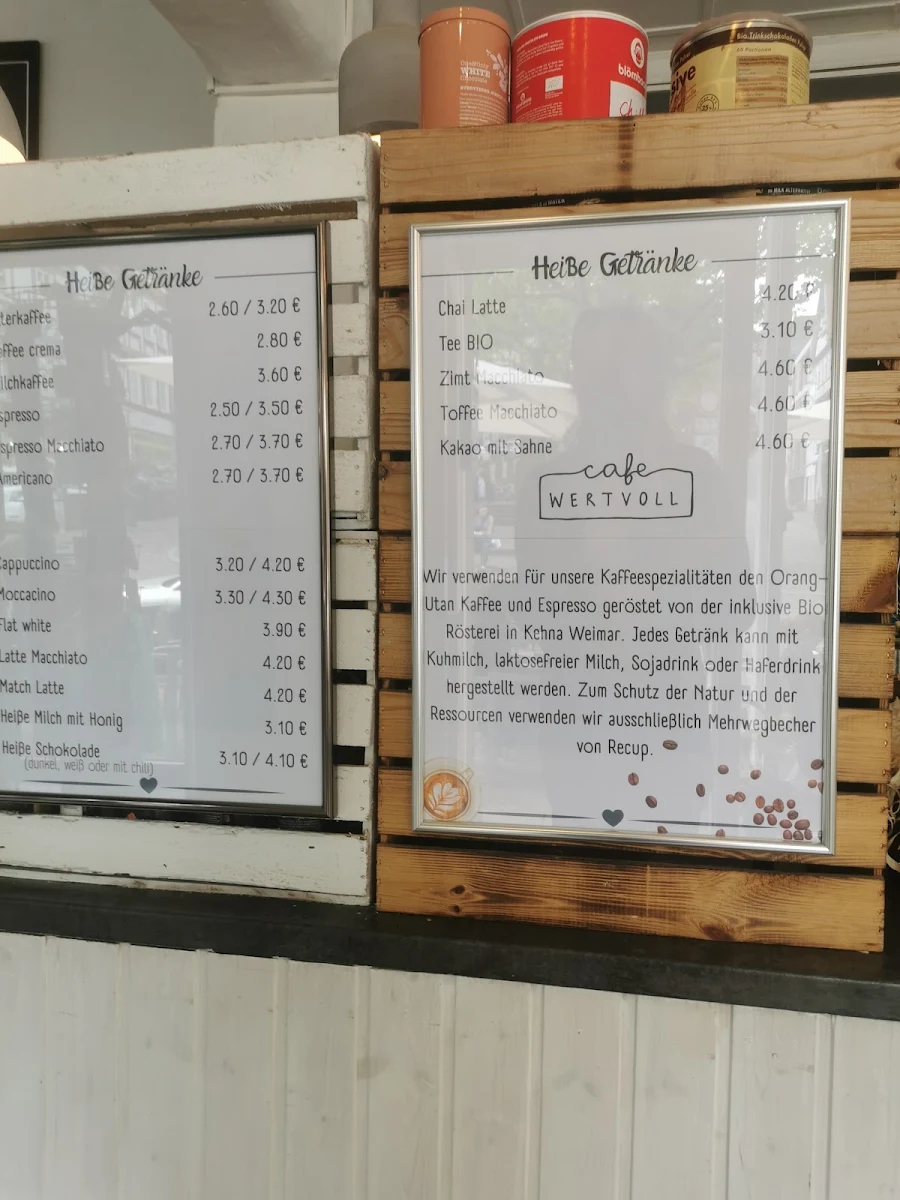 WHITE
blömbo
Bio Trinkschokolade
60 Portionen
sive
Heiße Getränke
terkaffee 2.60 / 3.20 €
ffee crema 2.80 €
ilchkaffee 3.60 €
spresso 2.50 / 3.50 €
spresso Macchiato 2.70 / 3.70 €
Americano 2.70 / 3.70 €
Cappuccino 3.20 / 4.20 €
Moccacino 3.30 / 4.30 €
Flat white 3.90 €
Latte Macchiato 4.20 €
Match Latte 4.20 €
Heiße Milch mit Honig 3.10 €
Heiße Schokolade 3.10 / 4.10 €
(dunkel, weiß oder mit chili)
Heiße Getränke
Chai Latte 4.20 €
Tee BIO 3.10 €
Zimt Macchiato 4.60 €
Toffee Macchiato 4.60 €
Kakao mit Sahne 4.60 €
cafe
WERTVOLL
Wir verwenden für unsere Kaffeespezialitäten den Orang-
Utan Kaffee und Espresso geröstet von der inklusive Bio
Rösterei in Kehna Weimar. Jedes Getränk kann mit
Kuhmilch, laktosefreier Milch, Sojadrink oder Haferdrink
hergestellt werden. Zum Schutz der Natur und der
Ressourcen verwenden wir ausschließlich Mehrwegbecher
von Recup.